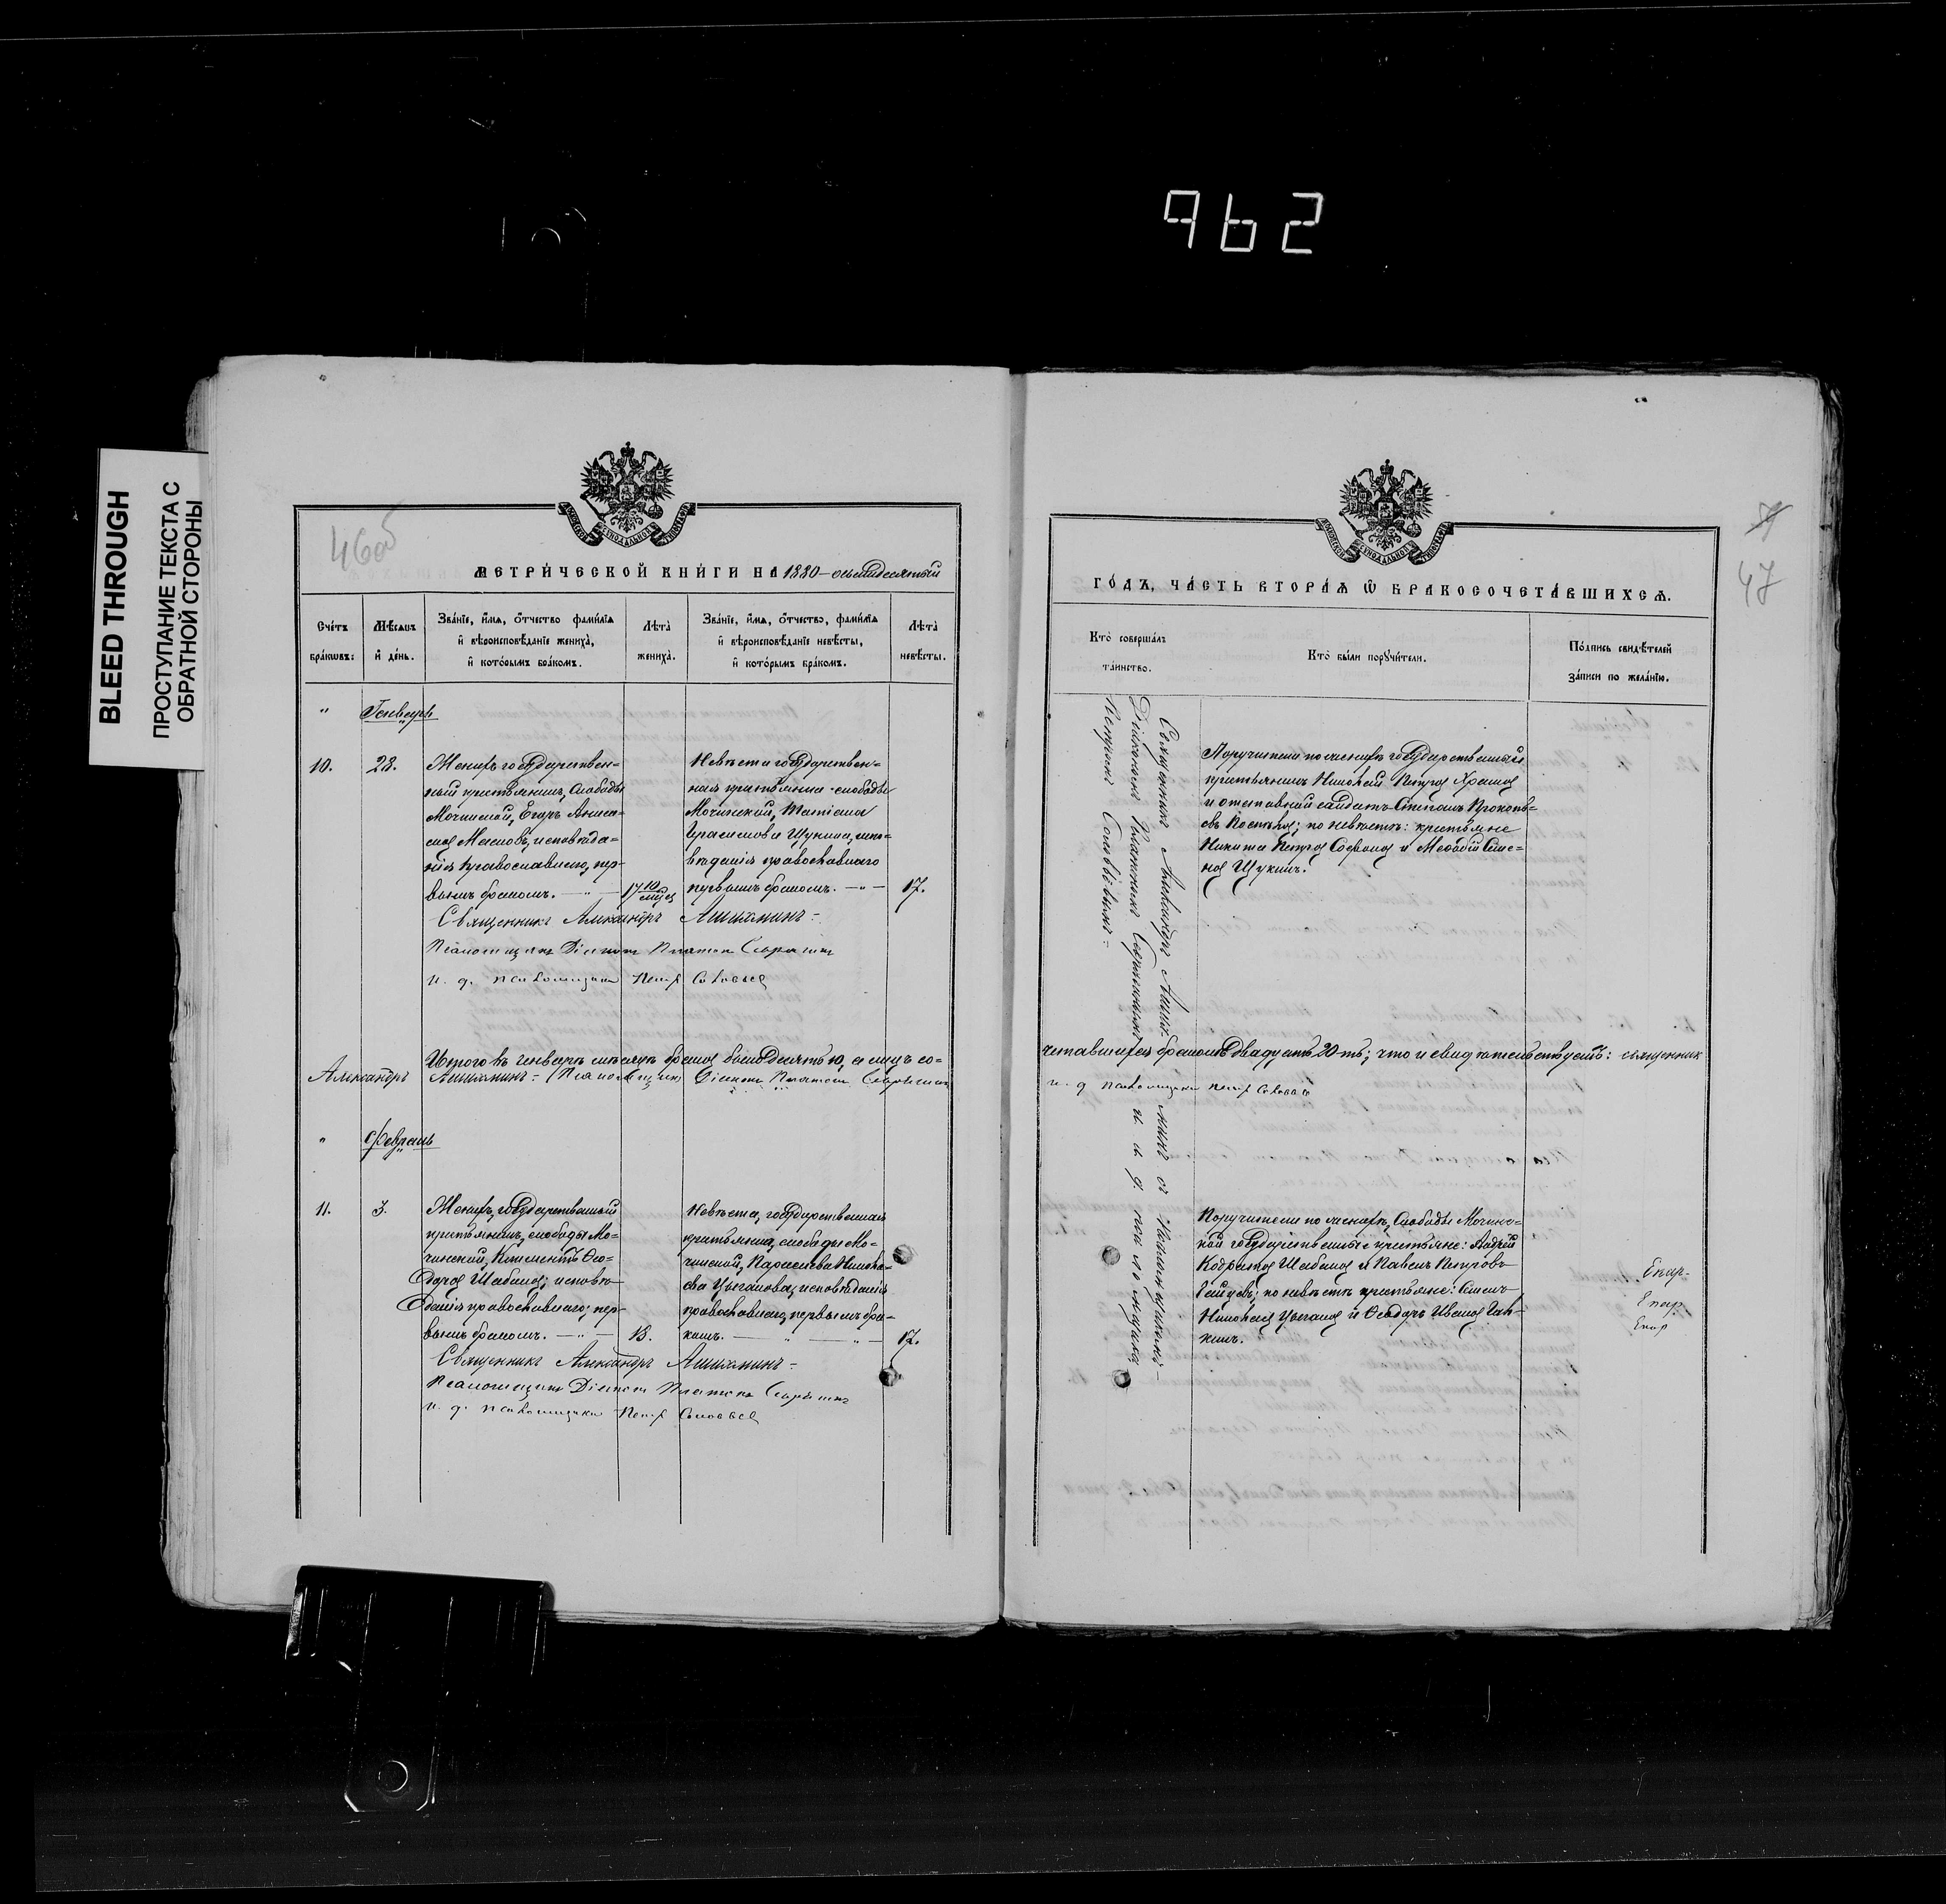 962
BLEED THROUGH
ПРОСТУПАНИЕ ТЕКСТА С
ОБРАТНОЙ СТОРОНЫ
46об
МЕТРИ́ЧЕСКОЙ КНИ́ГИ НА 1880-осьмидесятый
Сче́тъ
бра́ковъ:
Мѣ́сяцъ
и҆ де́нь.
Зва́нїе, и҆́мѧ, ѻ҆́тчество фами́лїѧ
и҆ вѣроисповѣ́данїе жениха̀,
и҆ кото́рымъ бра́комъ.
Лѣ́та
жениха̀.
Зва́нїе, и҆́мѧ, ѻ҆́тчество, фами́лїѧ
и҆ вѣроисповѣ́данїе невѣ́сты,
и҆ кото́рымъ бра́комъ.
Лѣ́та
невѣ́сты.
" Генварь
10. 28.
Женихъ государствен-
ный крестьянинъ, Слободы
Мочинской, Егоръ
Масловъ, исповѣда-
нія православнаго, пер-
вымъ бракомъ. — " —
17 10/мцов
Невѣста государствен-
ная крестьянка слободы
Мочинской, Татіана
Герасимова Щукина, испо-
вѣданія православнаго
первымъ бракомъ. — " —
17.
Священникъ Александръ
Псаломщикъ Діаконъ Платонъ
и. д. псаломщика Петръ Соловьев
Итого въ генварѣ мѣсяцѣ браков было десять 10, а лицъ со-
Александръ
Псаломщикъ Діаконъ Платонъ
" Февраль
11. 3.
Женихъ, государственный
крестьянинъ, слободы Мо-
чинской, Климентъ Ѳео-
доров Шабанов; исповѣ-
данія православнаго; пер-
вымъ бракомъ. — " —
18.
Невѣста, государственная
крестьянка, слободы Мо-
чинской, Параскева Никола-
ева Цыганова, исповѣданія
православнаго, первымъ бра-
комъ. — " — " —
17.
Священникъ Александръ
Псаломщикъ Діаконъ Платонъ
и. д. псаломщика Петръ Соловьев
47
ГО́ДЪ, ЧА́СТЬ ВТОРА́Ѧ Ѡ҆ БРАКОСОЧЕТА́ВШИХСѦ.
Кто̀ соверша́лъ
та́инство.
Кто̀ бы́ли порꙋчи́тели.
По́дпись свидѣ́телей
за́писи по жела́нїю.
Священникъ Александръ
Діакономъ Платономъ
и и. д. псаломщика
Петромъ Соловьевымъ
Поручители по женихѣ государственный
крестьянинъ Николай Петров Храмов
и отставной салдатъ Степанъ Прокопь-
евъ; по невѣстѣ: крестьяне
Никита Петров Софронов и Меѳодій Семе-
нов Щукинъ.
четавшихся бракомъ двадцать 20-ть; что и свидѣтельствуетъ: священник
и. д. псаломщика Петр Соловьев
Поручители по женихѣ, Слободы Мочинс-
кой государственные крестьяне: Андрей
Кондратов Шабанов и Павелъ Петровъ
; по невѣстѣ крестьяне: Семенъ
Николаев Цыганов и Ѳеодоръ Иванов Гал-
кинъ.
Епар.
Епар.
Епар